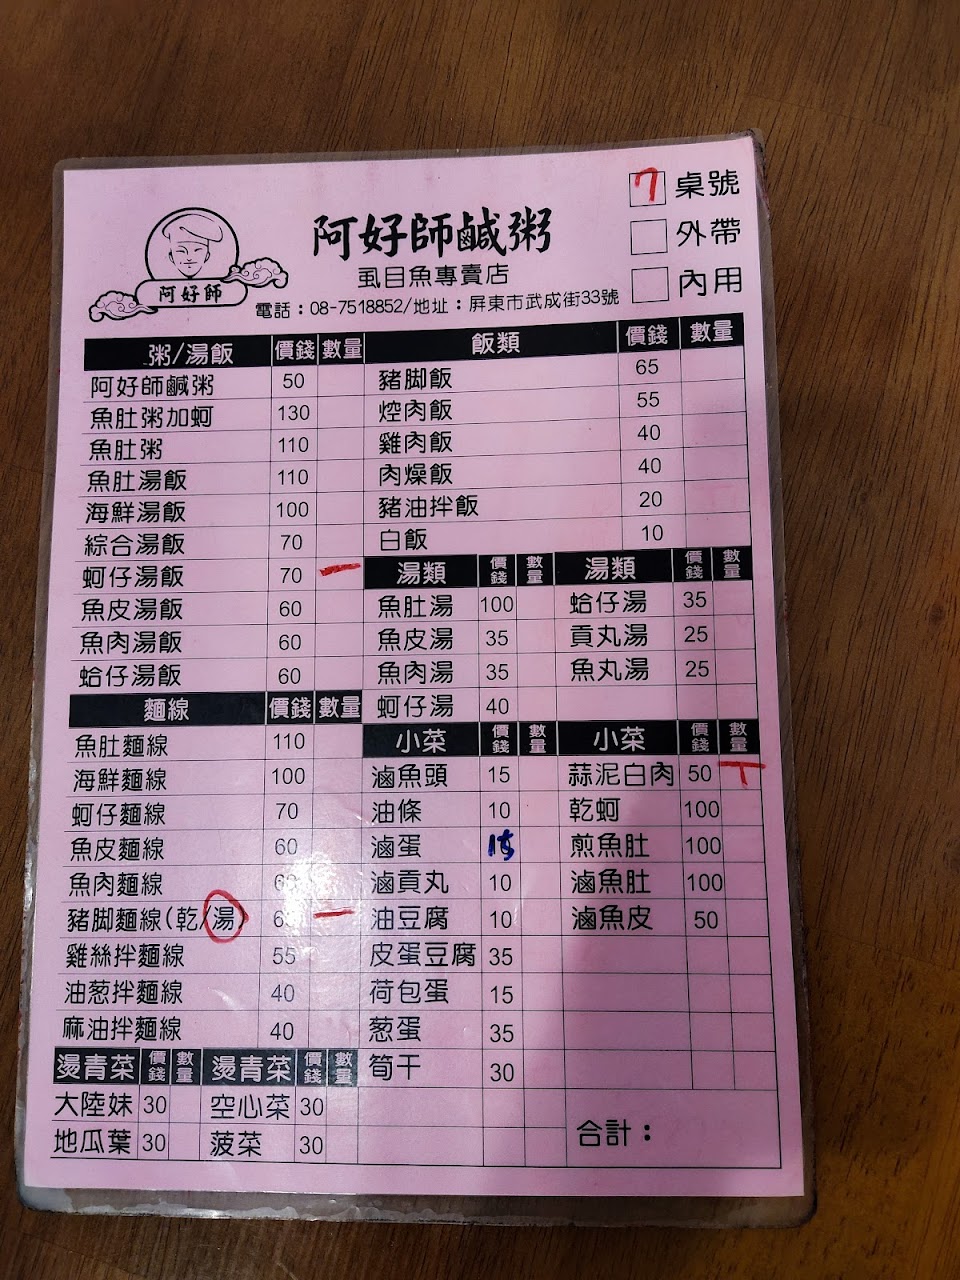 7 桌號
外帶
內用
阿好師
阿好師鹹粥
虱目魚專賣店
電話：08-7518852/地址：屏東市武成街33號
粥/湯飯 價錢 數量
阿好師鹹粥 50
魚肚粥加蚵 130
魚肚粥 110
魚肚湯飯 110
海鮮湯飯 100
綜合湯飯 70
蚵仔湯飯 70 一
魚皮湯飯 60
魚肉湯飯 60
蛤仔湯飯 60
麵線 價錢 數量
魚肚麵線 110
海鮮麵線 100
蚵仔麵線 70
魚皮麵線 60
魚肉麵線
豬腳麵線(乾/湯) 一
雞絲拌麵線 55
油葱拌麵線 40
麻油拌麵線 40
燙青菜 價錢 數量 燙青菜 價錢 數量
大陸妹 30 空心菜 30
地瓜葉 30 菠菜 30
飯類 價錢 數量
豬腳飯 65
焢肉飯 55
雞肉飯 40
肉燥飯 40
豬油拌飯 20
白飯 10
湯類 價錢 數量 湯類 價錢 數量
魚肚湯 100 蛤仔湯 35
魚皮湯 35 貢丸湯 25
魚肉湯 35 魚丸湯 25
蚵仔湯 40
小菜 價錢 數量 小菜 價錢 數量
滷魚頭 15 蒜泥白肉 50
油條 10 乾蚵 100
滷蛋 15 煎魚肚 100
滷貢丸 10 滷魚肚 100
油豆腐 10 滷魚皮 50
皮蛋豆腐 35
荷包蛋 15
葱蛋 35
筍干 30
合計：